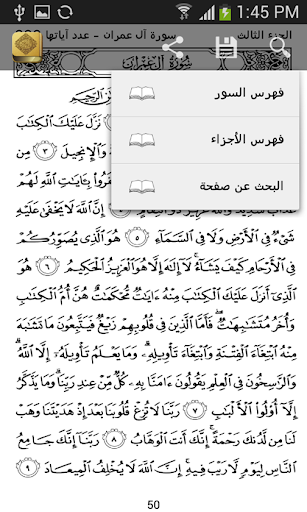 1:45 PM
الجزء الثالث
سورة آل عمران - عدد آياتها
سُورَةُ آلِ عِمْرَانَ
فهرس السور
فهرس الأجزاء
البحث عن صفحة
الرَّحِيمِ
نَزَّلَ عَلَيْكَ الْكِتَٰبَ
وَالْإِنجِيلَ ٣
بِـَٔايَٰتِ اللَّهِ لَهُمْ
٤ إِنَّ اللَّهَ لَا يَخْفَىٰ عَلَيْهِ
شَىْءٌ فِي الْأَرْضِ وَلَا فِي السَّمَآءِ ٥ هُوَ الَّذِي يُصَوِّرُكُمْ
فِي الْأَرْحَامِ كَيْفَ يَشَآءُ لَآ إِلَٰهَ إِلَّا هُوَ الْعَزِيزُ الْحَكِيمُ ٦
هُوَ الَّذِيٓ أَنزَلَ عَلَيْكَ الْكِتَٰبَ مِنْهُ ءَايَٰتٌ مُّحْكَمَٰتٌ هُنَّ أُمُّ الْكِتَٰبِ
وَأُخَرُ مُتَشَٰبِهَٰتٌ فَأَمَّا الَّذِينَ فِي قُلُوبِهِمْ زَيْغٌ فَيَتَّبِعُونَ مَا تَشَٰبَهَ
مِنْهُ ابْتِغَآءَ الْفِتْنَةِ وَابْتِغَآءَ تَأْوِيلِهِ وَمَا يَعْلَمُ تَأْوِيلَهُۥٓ إِلَّا اللَّهُ
وَالرَّٰسِخُونَ فِي الْعِلْمِ يَقُولُونَ ءَامَنَّا بِهِ كُلٌّ مِّنْ عِندِ رَبِّنَا وَمَا يَذَّكَّرُ
إِلَّآ أُو۟لُوا۟ الْأَلْبَٰبِ ٧ رَبَّنَا لَا تُزِغْ قُلُوبَنَا بَعْدَ إِذْ هَدَيْتَنَا وَهَبْ
لَنَا مِن لَّدُنكَ رَحْمَةً إِنَّكَ أَنتَ الْوَهَّابُ ٨ رَبَّنَآ إِنَّكَ جَامِعُ
النَّاسِ لِيَوْمٍ لَّا رَيْبَ فِيهِ إِنَّ اللَّهَ لَا يُخْلِفُ الْمِيعَادَ ٩
50